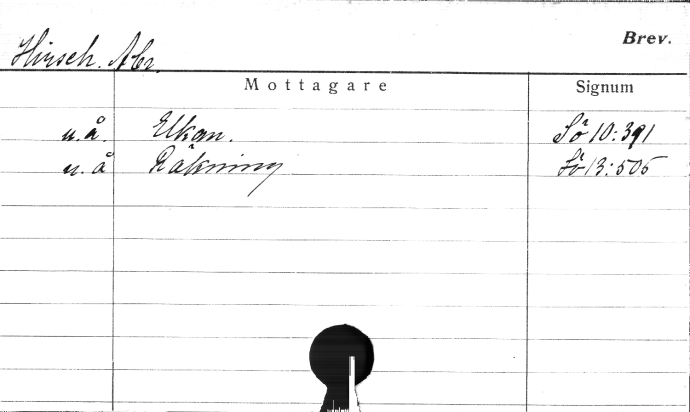 Brev.
Hirsch. Abr.
Mottagare Signum
u.å. Elkan. Sö 10:391
u.å Räkning Sö 13:505